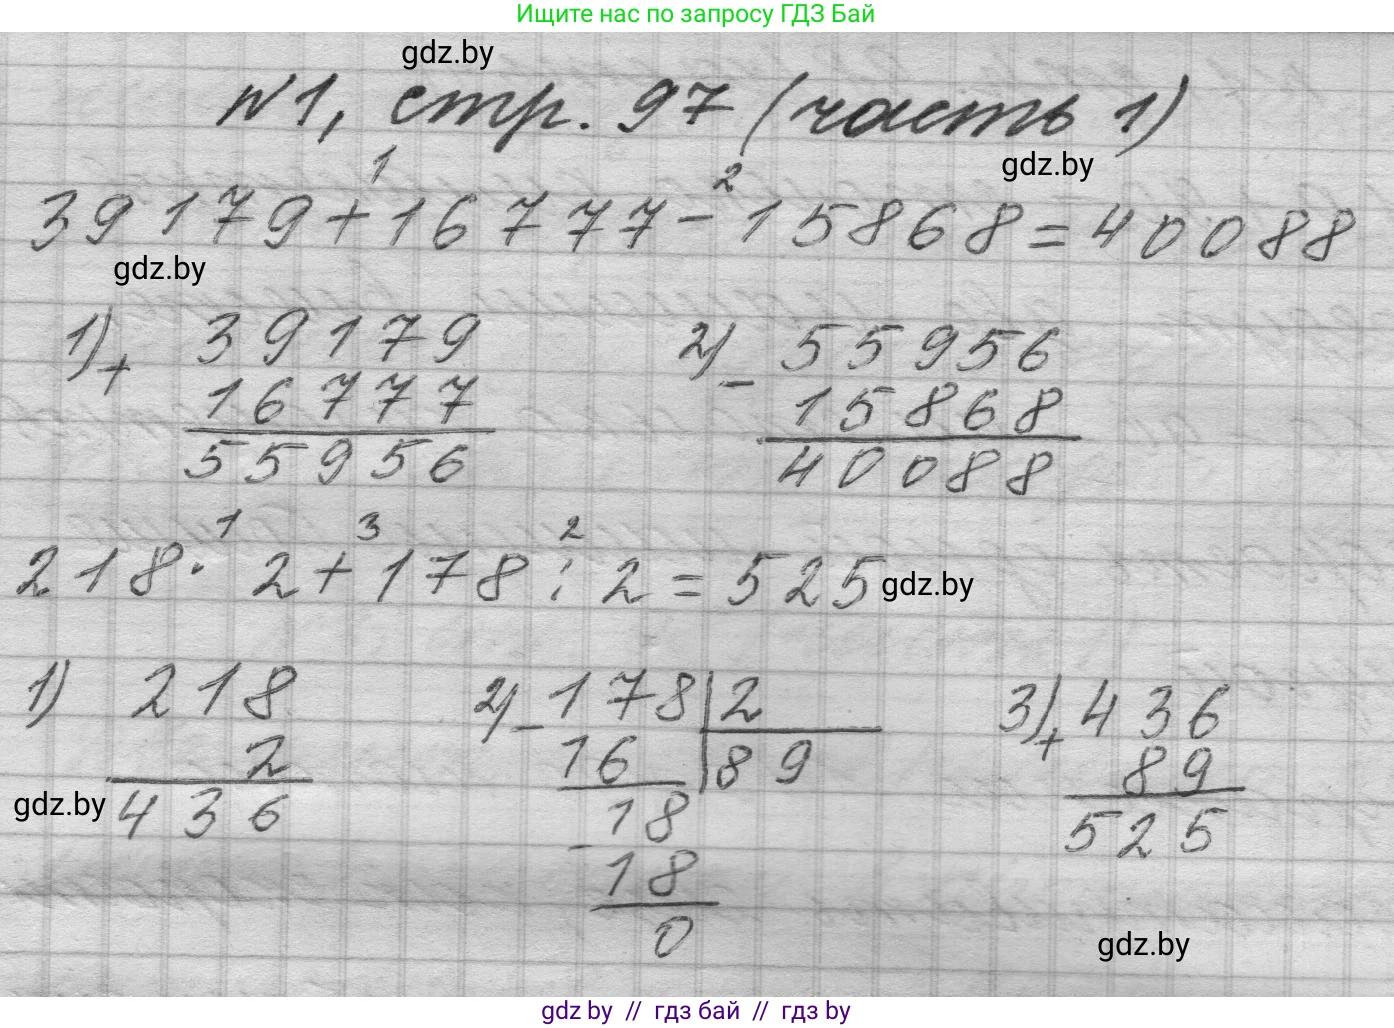 Ищите нас по запросу ГДЗ Бай
gdz.by
№1, стр. 97 (часть 1)
gdz.by
1 2
39179+16777-15868=40088
gdz.by
1) + 39179
16777
55956
2) - 55956
15868
40088
1 3 2
218· 2+178:2=525
gdz.by
1) 218
2
436
gdz.by
2) -178|2
16 |89
-18
18
0
3) + 436
89
525
gdz.by
gdz by // гдз бай // гдз by